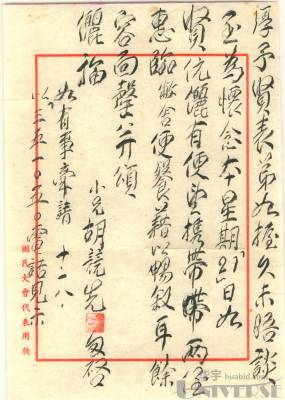 賢表弟如握久未晤談
至為懷念本星期日如
賢伉儷有便攜帶兩位
惠臨敝舍便餐藉以暢敘耳餘
容面罄並頌
儷福
小兄胡競先匆啓
十二八
如有事牽請
以三五一〇五〇電話見示
國民大會代表用牋
华宇
huabid.com
UNIVERSE